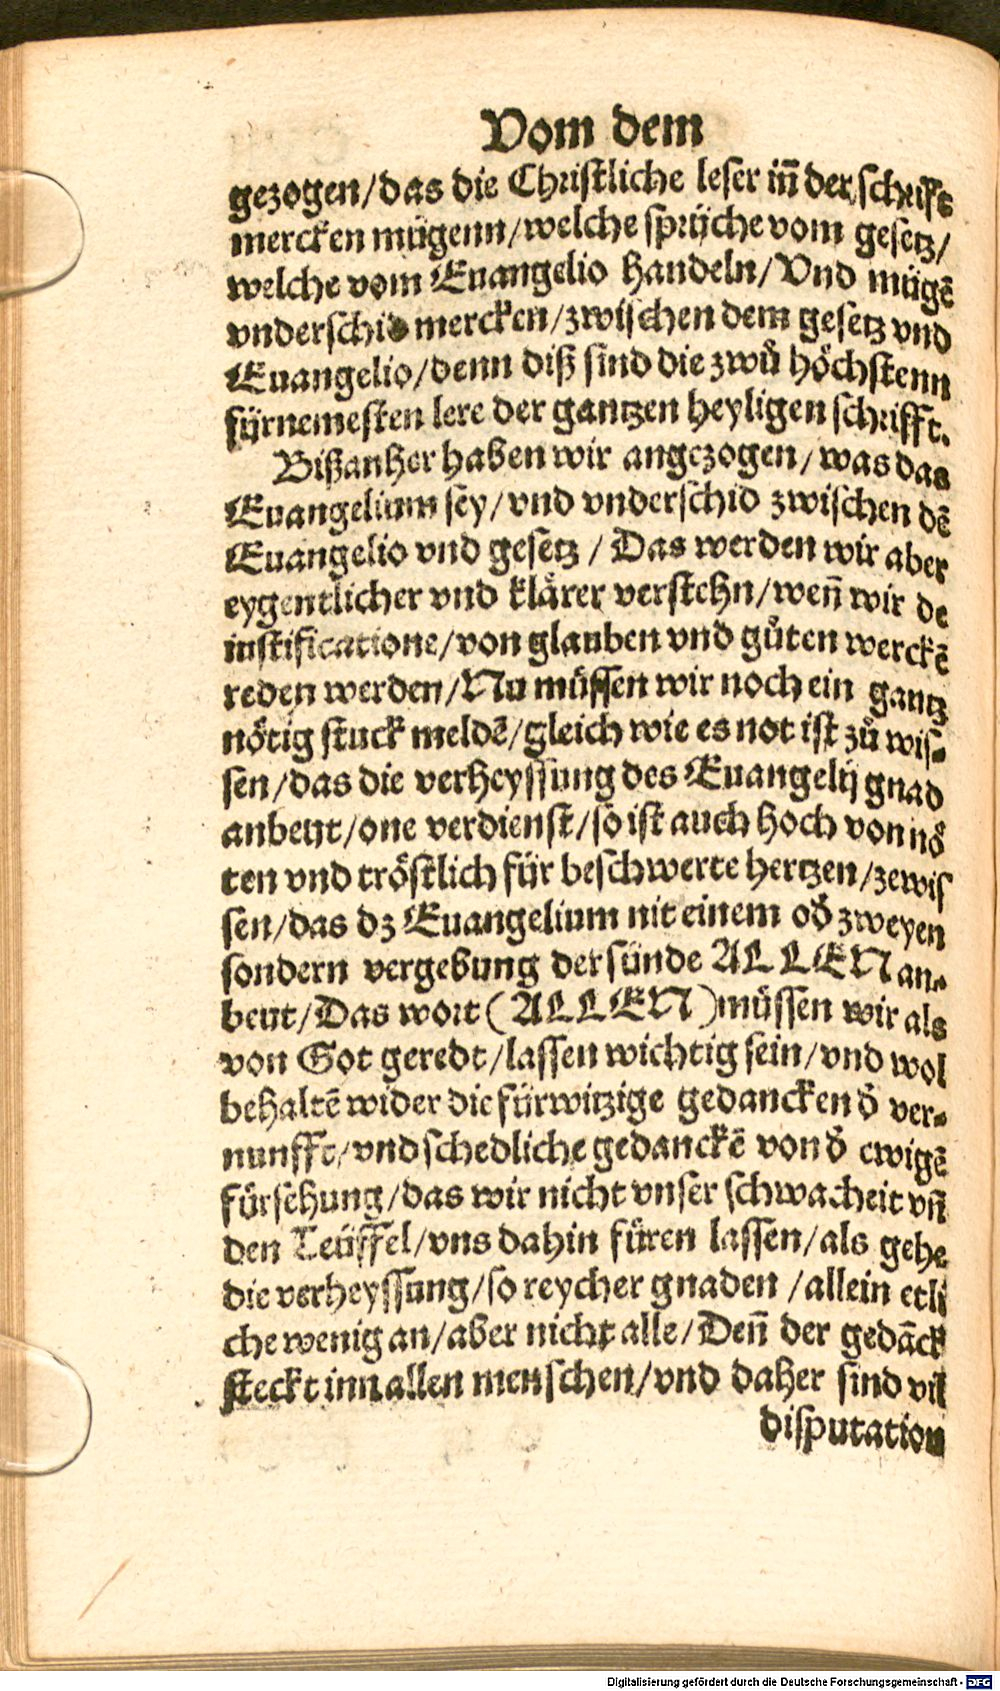 Vom dem
gezogen/das die Christliche leser iñ der schrifft
mercken mügenn/welche sprüche vom gesetz/
welche vom Euangelio handeln/Vnd mügē
vnderschid mercken/zwischen dem gesetz vnd
Euangelio/denn diß sind die zwů höchstenn
fürnemesten lere der gantzen heyligen schrifft.
Bißanher haben wir angezogen/was das
Euangelium sey/vnd vnderschid zwischen dē
Euangelio vnd gesetz/Das werden wir aber
eygentlicher vnd klärer verstehn/weñ wir de
iustificatione/von glauben vnd gůten werckē
reden werden/Nu müssen wir noch ein gantz
nötig stuck meldē/gleich wie es not ist zů wis-
sen/das die verheyssung des Euangelij gnad
anbeut/one verdienst/so ist auch hoch von nö
ten vnd tröstlich für beschwerte hertzen/zewis
sen/das dz Euangelium nit einem oď zweyen
sondern vergebung der sünde ALLEN an-
beut/Das wort (ALLEN) müssen wir als
von Got geredt/lassen wichtig sein/vnd wol
behaltē wider die fürwitzige gedancken ď ver-
nunfft/vnd schedliche gedanckē von ď ewigē
fürsehung/das wir nicht vnser schwacheit vñ
den Teüffel/vns dahin füren lassen/als gehe
die verheyssung/so reycher gnaden/allein etli
che wenig an/aber nicht alle/Deñ der gedāck
steckt inn allen menschen/vnd daher sind vil
disputation
Digitalisierung gefördert durch die Deutsche Forschungsgemeinschaft - DFG